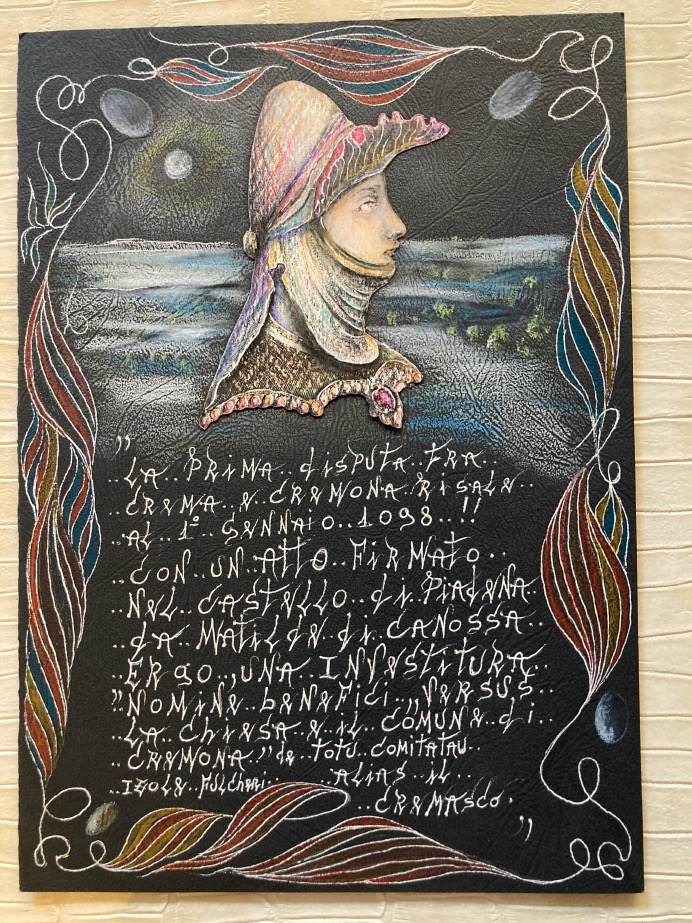 "
..LA..PRIMA..disPUTA..tRA..
..CREMA..&..CREMONA..RiSALE..
..AL..1°..GENNAIO..1098..!!
..CON..UN..Atto..FIRMATO..
..NEL..CASTELLO..di..PiAdENA..
..dA..MATILdE..di..CANOSSA..
..ERGO..,UNA..INVESTITURA..
"NOMINE..bENEFiCi..,,VERSUS..
..LA..ChiESA..E..iL..COMUNE..di..
..CREMONA.."de..totu..COMitAtAU..
..ISOLE..FULChERi.. ..ALIAS..iL..
..CREMASCO.
"